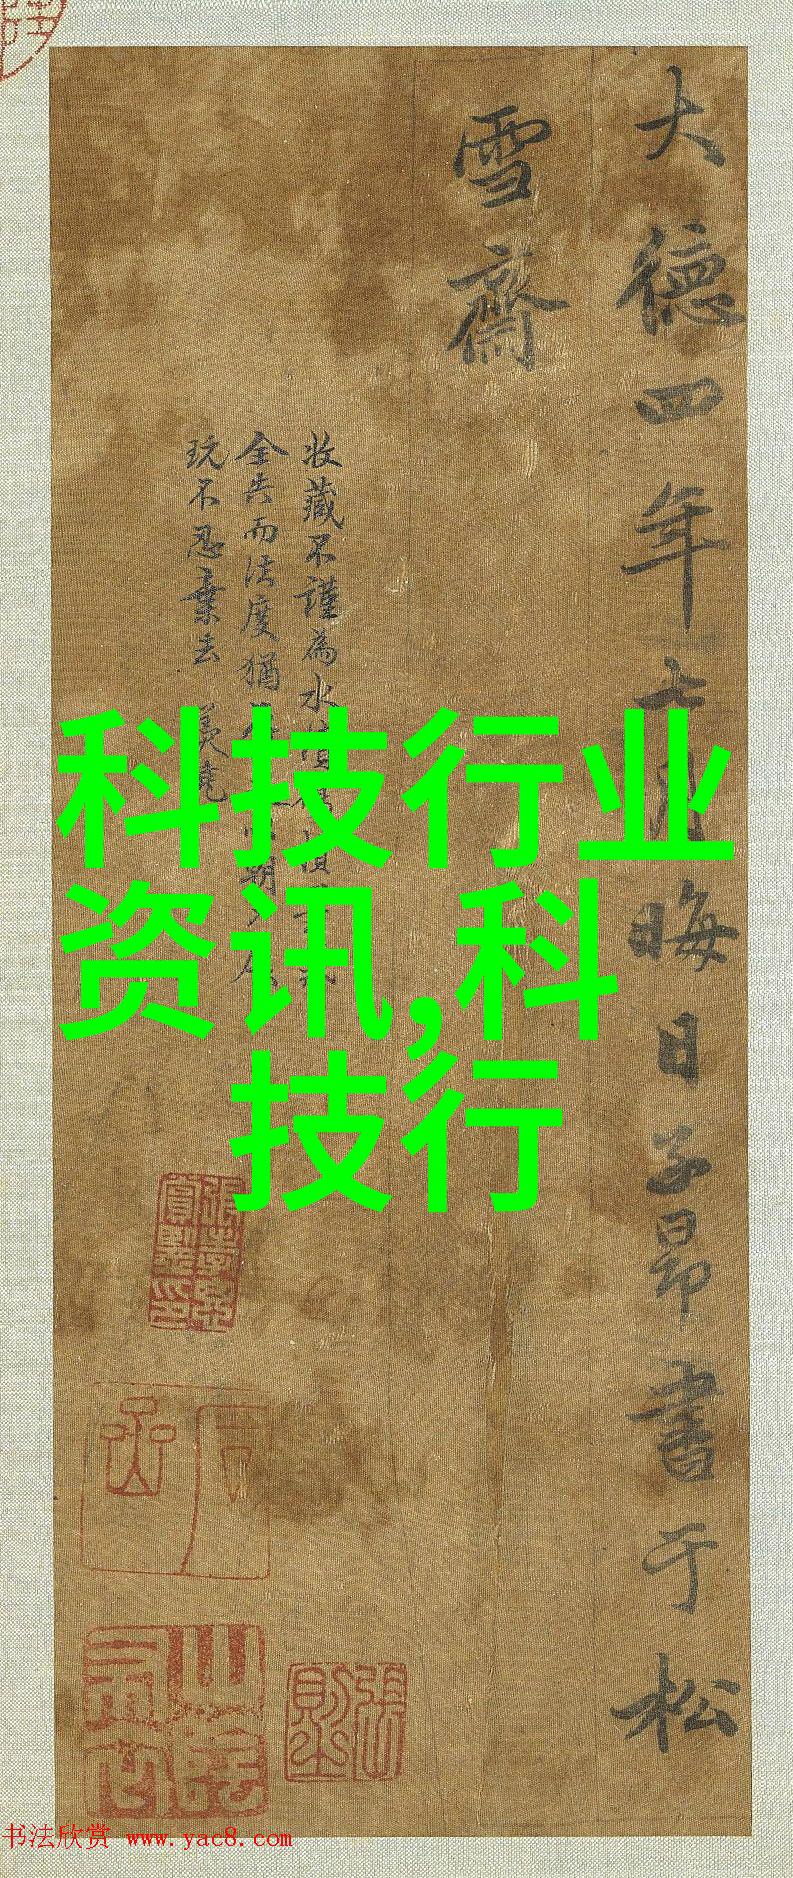 大德四年七月晦日子昂書于松
雪齋
收藏不謹為水
全 而法度猶
玩不忍棄去
科技行业
资讯,科
技行
張孝思賞鑒印
張則之
书法欣赏 www.yac8.com